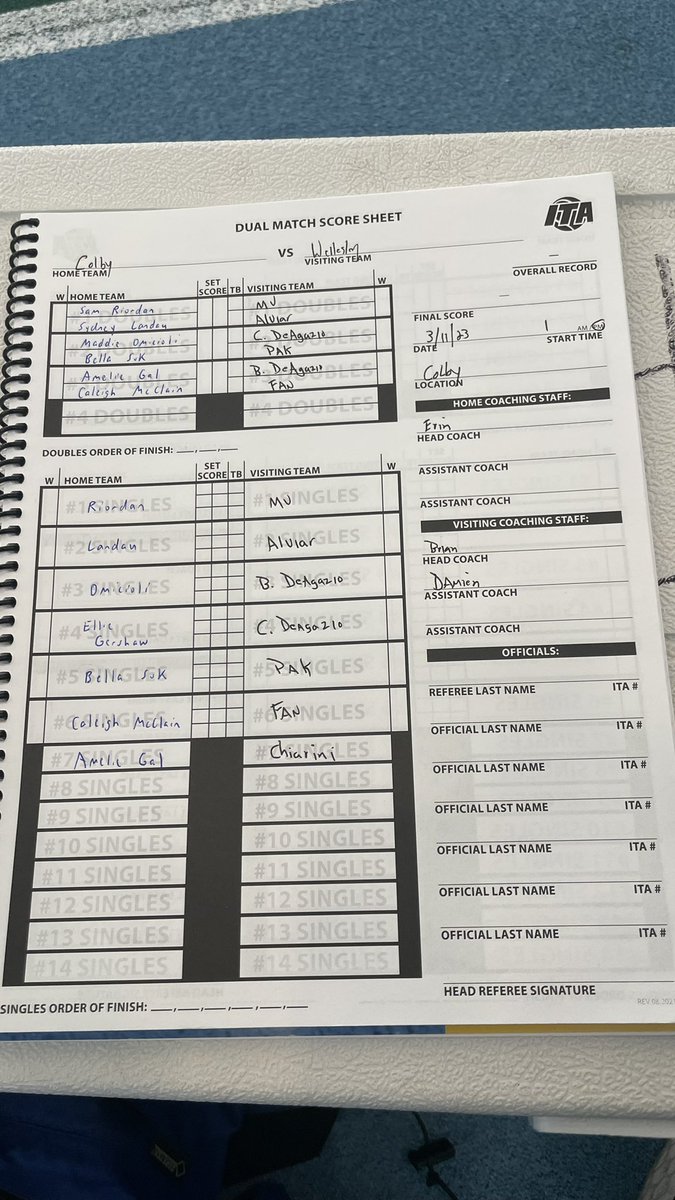 DUAL MATCH SCORE SHEET
ITA
Colby VS Wellesley
HOME TEAM VISITING TEAM
OVERALL RECORD
W HOME TEAM SET SCORE TB VISITING TEAM W
Sam Riordan MU
Sydney Landau Alviar
Maddie Omicioli C. DeAgazio
Bella Suk PAK
Amelie Gal B. DeAgazio
Caleigh McClain FAN
#4 DOUBLES #4 DOUBLES
DOUBLES ORDER OF FINISH: ___,___,___
W HOME TEAM SET SCORE TB VISITING TEAM W
#1 SINGLES Riordan #1 SINGLES MU
#2 SINGLES Landau #2 SINGLES Alviar
#3 SINGLES Omicioli #3 SINGLES B. DeAgazio
#4 SINGLES Ellie Gershaw #4 SINGLES C. DeAgazio
#5 SINGLES Bella Suk #5 SINGLES PAK
#6 SINGLES Caleigh McClain #6 SINGLES FAN
#7 SINGLES Amelie Gal #7 SINGLES Chiarini
#8 SINGLES #8 SINGLES
#9 SINGLES #9 SINGLES
#10 SINGLES #10 SINGLES
#11 SINGLES #11 SINGLES
#12 SINGLES #12 SINGLES
#13 SINGLES #13 SINGLES
#14 SINGLES #14 SINGLES
SINGLES ORDER OF FINISH: ___,___,___,___,___,___
FINAL SCORE
3/11/23 1 AM/PM
DATE START TIME
Colby
LOCATION
HOME COACHING STAFF:
Erin
HEAD COACH
ASSISTANT COACH
ASSISTANT COACH
VISITING COACHING STAFF:
Brian
HEAD COACH
DAmien
ASSISTANT COACH
ASSISTANT COACH
OFFICIALS:
REFEREE LAST NAME ITA #
OFFICIAL LAST NAME ITA #
OFFICIAL LAST NAME ITA #
OFFICIAL LAST NAME ITA #
OFFICIAL LAST NAME ITA #
OFFICIAL LAST NAME ITA #
OFFICIAL LAST NAME ITA #
HEAD REFEREE SIGNATURE